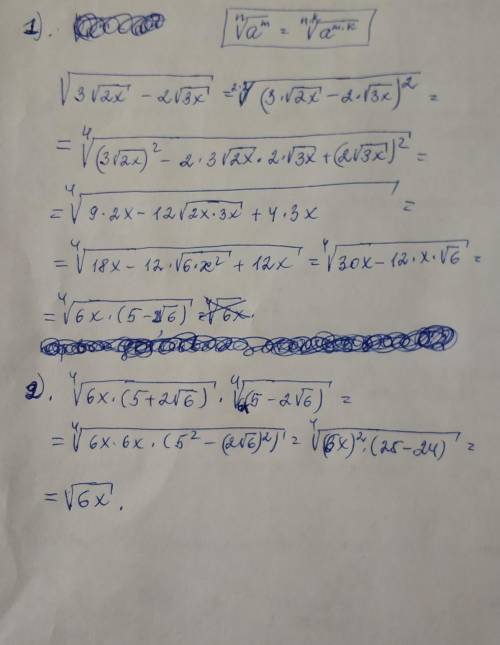 1).
ⁿ√(aᵐ) = ⁿ·ᵏ√(aᵐ·ᵏ)
√(3√(2x) − 2√(3x)) = ²·²√((3·√(2x) − 2·√(3x))²) =
= ⁴√((3√(2x))² − 2·3√(2x)·2·√(3x) + (2√(3x))²) =
= ⁴√(9·2x − 12√(2x·3x) + 4·3x) =
= ⁴√(18x − 12·√(6·x²) + 12x) = ⁴√(30x − 12·x·√6) =
= ⁴√(6x·(5 − 2√6))
2). ⁴√(6x·(5 + 2√6)) · ⁴√(6x(5 − 2√6)) =
= ⁴√(6x·6x·(5² − (2√6)²)) = ⁴√((6x)²·(25 − 24)) =
= √(6x).